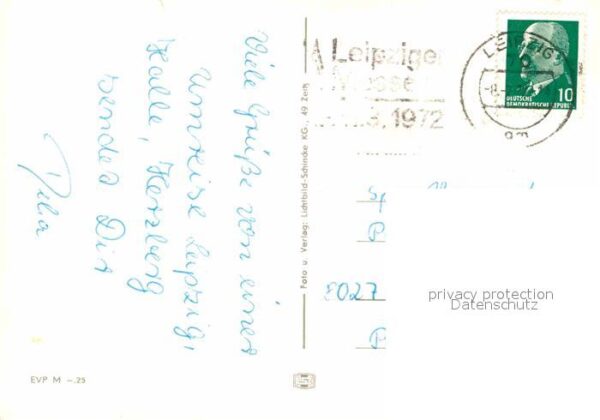 Viele Grüße von einer
Umreise Leipzig,
Halle, Herzberg
sendet Dir
Foto u. Verlag: Lichtbild-Schincke KG., 49 Zeitz
EVP M –.25
Leipziger
Messe
1972
LEIPZIG
DEUTSCHE
DEMOKRATISCHE REPUBLIK
10
8027
privacy protection
Datenschutz